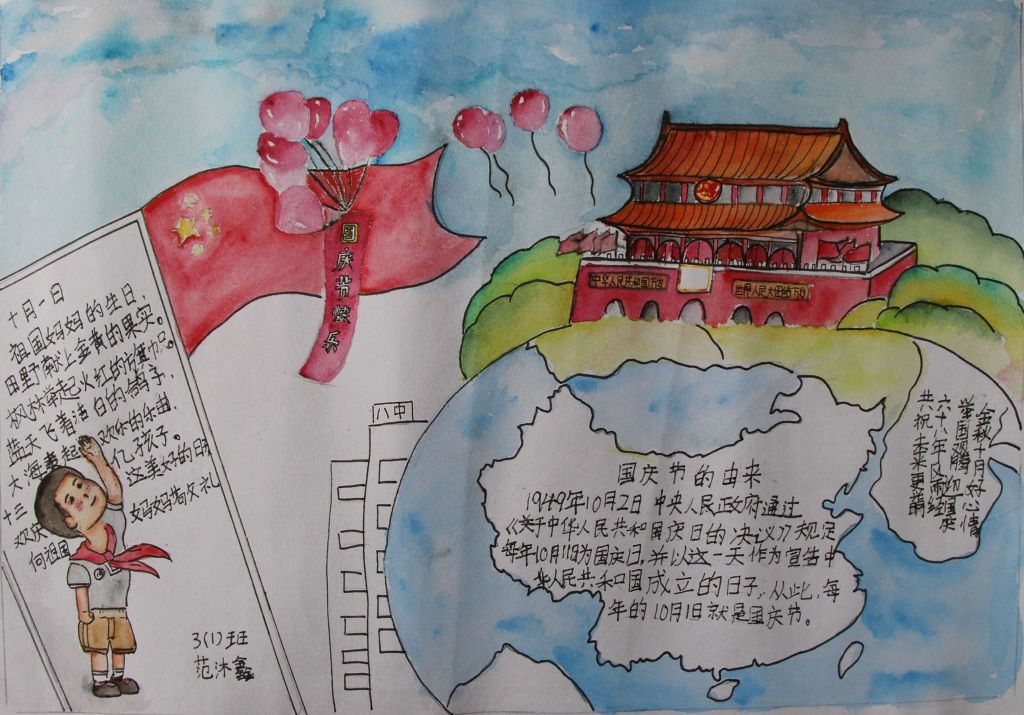 十月一日
祖国妈妈的生日,
田野献上金黄的果实。
枫林举起火红的
蓝天飞着洁白的鸽子,
大海奏起欢乐的乐曲,
十三亿孩子。
欢庆这美好的日
向祖国妈妈
国庆节快乐
中华人民共和国万岁
世界人民大团结万岁
八中
国庆节的由来
1949年10月2日中央人民政府通过
《关于中华人民共和国国庆日的决议》,规定
每年10月1日为国庆日,并以这一天作为宣告中
华人民共和国成立的日子,从此,每
年的10月1日就是国庆节。
金秋十月好心情
举国欢腾迎国庆
六十八年风雨
共祝未来更
3(1)班
范沐鑫